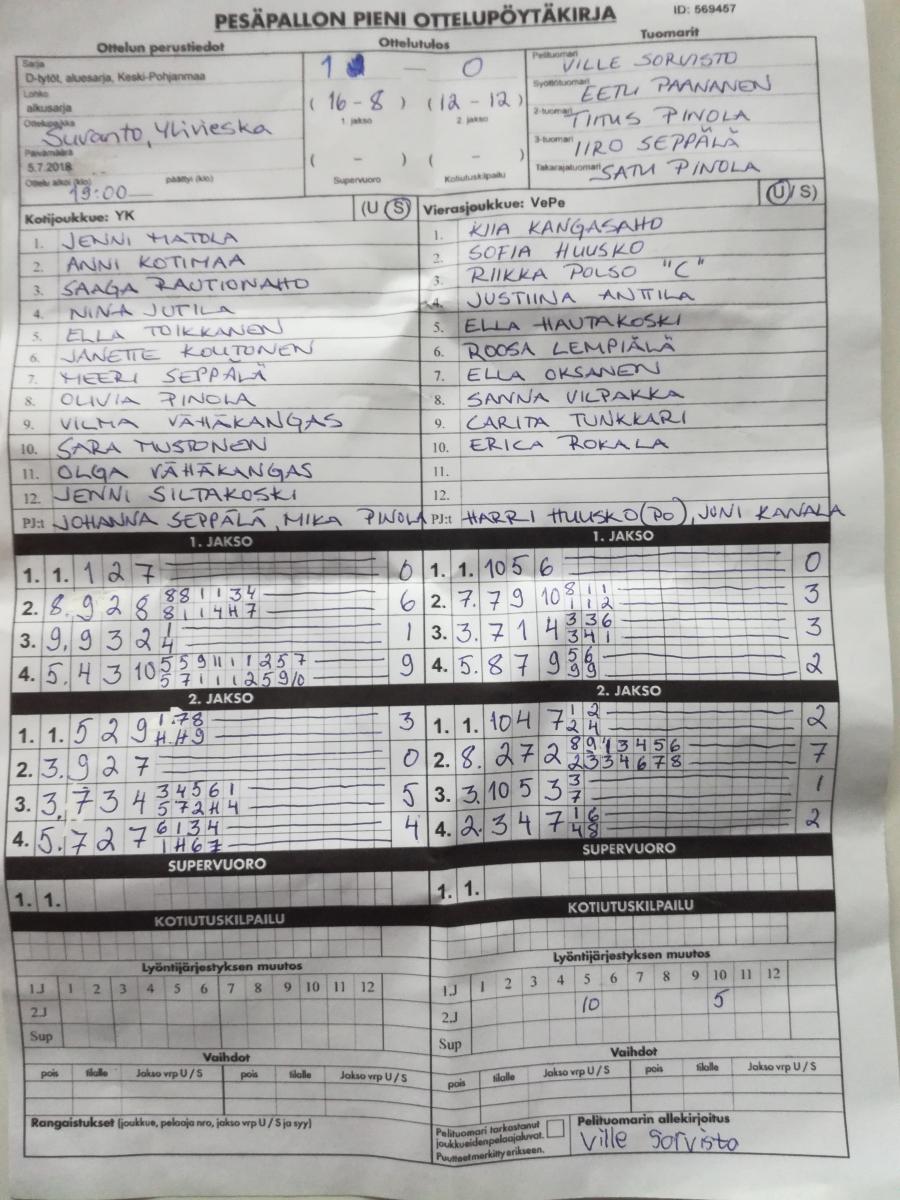 PESÄPALLON PIENI OTTELUPÖYTÄKIRJA ID: 569457
Ottelun perustiedot
Sarja
D-tytöt, aluesarja, Keski-Pohjanmaa
Lohko
alkusarja
Ottelupaikka
Suvanto, Ylivieska
Päivämäärä
5.7.2018
Ottelu alkoi (klo) päättyi (klo)
19:00
Ottelutulos
1 — 0
( 16 - 8 ) ( 12 - 12 )
1. jakso 2. jakso
( - ) ( - )
Supervuoro Kotiutuskilpailu
Tuomarit
Pelituomari VILLE SORVISTO
Syöttötuomari EETU PAANANEN
2-tuomari TIITUS PINOLA
3-tuomari IIRO SEPPÄLÄ
Takarajatuomari SATU PINOLA
Kotijoukkue: YK (U / S)
1. JENNI MATOLA
2. ANNI KOTIMAA
3. SAAGA RAUTIONAHO
4. NINA JUTILA
5. ELLA TOIKKANEN
6. JANETTE KOUTONEN
7. MEERI SEPPÄLÄ
8. OLIVIA PINOLA
9. VILMA VÄHÄKANGAS
10. SARA MUSTONEN
11. OLGA VÄHÄKANGAS
12. JENNI SILTAKOSKI
PJ:t JOHANNA SEPPÄLÄ, MIKA PINOLA
Vierasjoukkue: VePe (U / S)
1. KIIA KANGASAHO
2. SOFIA HUUSKO
3. RIIKKA POLSO "C"
4. JUSTIINA ANTTILA
5. ELLA HAUTAKOSKI
6. ROOSA LEMPIÄLÄ
7. ELLA OKSANEN
8. SANNA VILPAKKA
9. CARITA TUNKKARI
10. ERICA ROKALA
11.
12.
PJ:t HARRI HUUSKO (PO), JONI KANALA
1. JAKSO
1. 1. 1 2 7 0
2. 8. 9 2 8 8 8 1 1 3 4 6
8 1 1 4 H 7
3. 9. 9 3 2 1 1
4
4. 5. 4 3 10 5 5 9 11 1 1 2 5 7 9
5 7 1 1 1 2 5 9 10
1. JAKSO
1. 1. 10 5 6 0
2. 7. 7 9 10 8 1 1 3
1 1 2
3. 3. 7 1 4 3 3 6 3
3 4 1
4. 5. 8 7 9 5 6 2
9 9
2. JAKSO
1. 1. 5 2 9 1. 7 8 3
H. H 9
2. 3. 9 2 7 0
3. 3. 7 3 4 3 4 5 6 1 5
5 7 2 H 4
4. 5. 7 2 7 6 1 3 4 4
1 H 6 7
2. JAKSO
1. 1. 10 4 7 1 2 2
2 4
2. 8. 2 7 2 8 9 1 3 4 5 6 7
2 3 3 4 6 7 8
3. 3. 10 5 3 3 1
7
4. 2. 3 4 7 1 6 2
4 8
SUPERVUORO
1. 1.
SUPERVUORO
1. 1.
KOTIUTUSKILPAILU
KOTIUTUSKILPAILU
Lyöntijärjestyksen muutos
1.J 1 2 3 4 5 6 7 8 9 10 11 12
2.J
Sup
Lyöntijärjestyksen muutos
1.J 1 2 3 4 5 6 7 8 9 10 11 12
2.J 10 5
Sup
Vaihdot
pois tilalle Jakso vrp U / S pois tilalle Jakso vrp U / S
Vaihdot
pois tilalle Jakso vrp U / S pois tilalle Jakso vrp U / S
Rangaistukset (joukkue, pelaaja nro, jakso vrp U / S ja syy)
Pelituomari tarkastanut
joukkueiden pelaajaluvat.
Puutteet merkitty erikseen.
Pelituomarin allekirjoitus
Ville Sorvisto